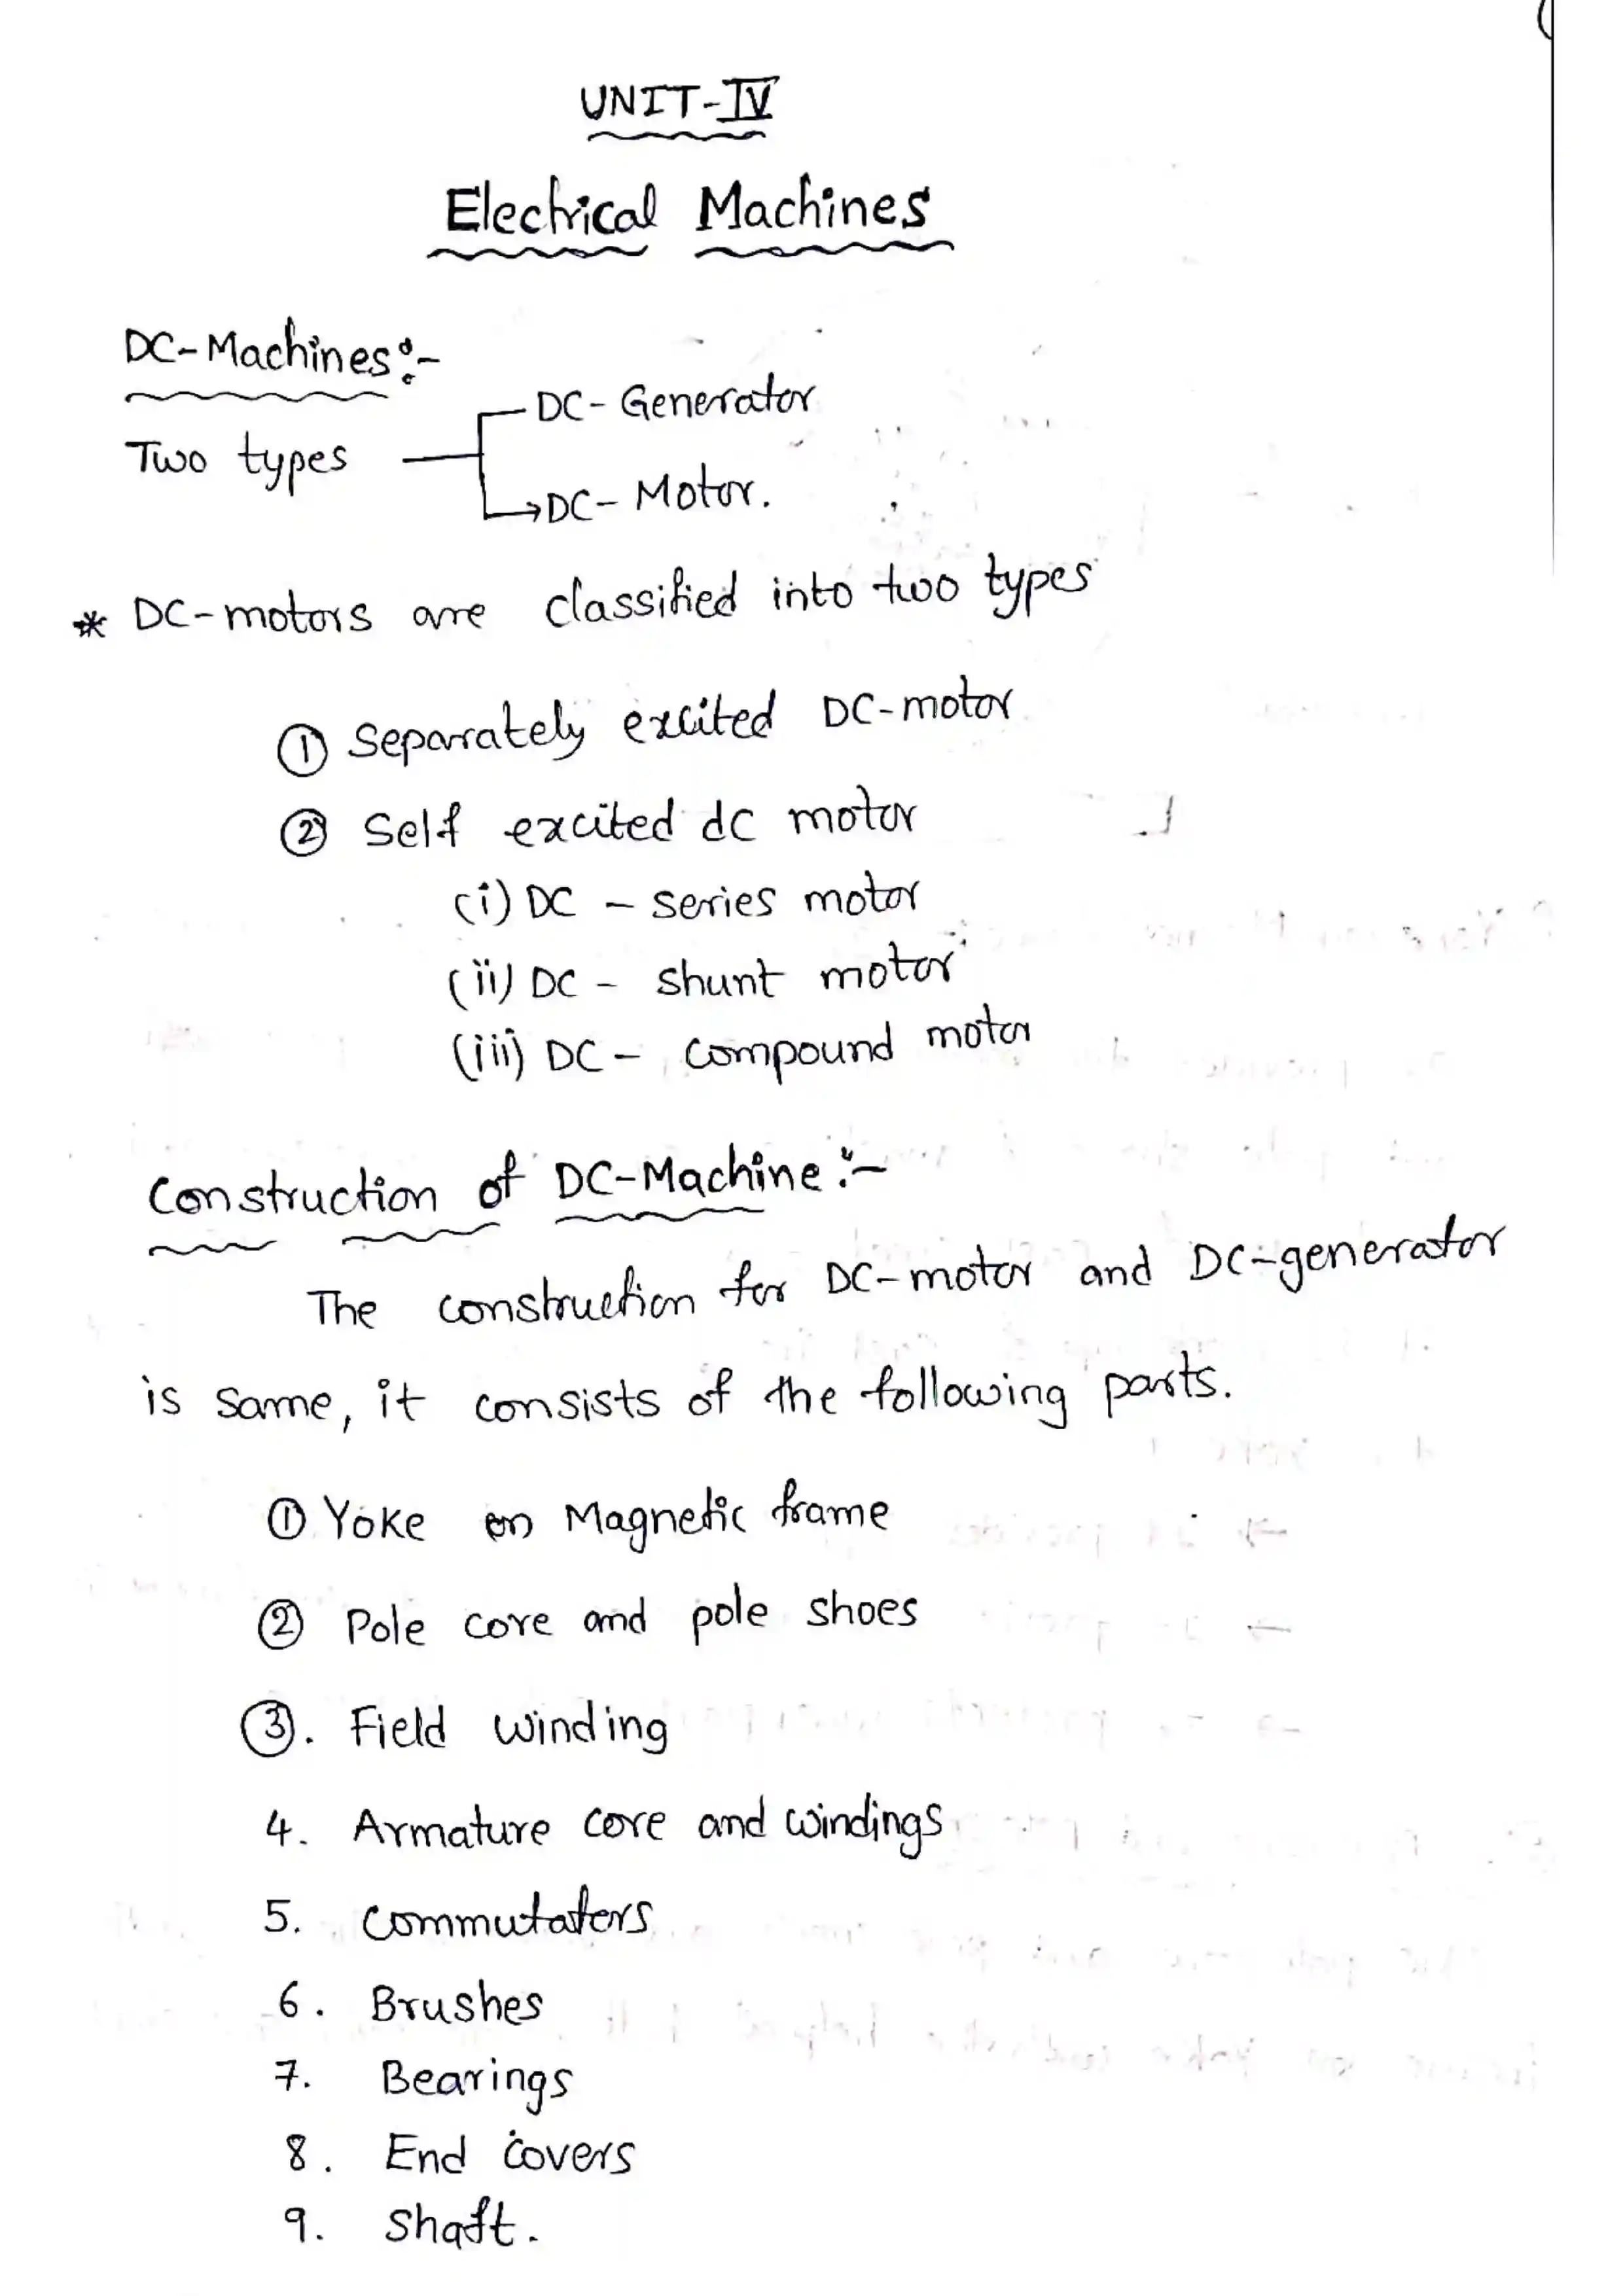 UNIT-IV
Electrical Machines
DC-Machines:-
DC-Generator
Two types
DC-Motor.
* DC-motors are classified into two types
① Separately excited DC-motor
② Self excited dc motor
(i) DC - series motor
(ii) DC - shunt motor
(iii) DC - compound motor
Construction of DC-Machine:-
The construction for DC-motor and DC-generator
is same, it consists of the following parts.
① Yoke or Magnetic frame
② Pole core and pole shoes
③. Field winding
4. Armature core and windings
5. Commutators
6. Brushes
7. Bearings
8. End covers
9. Shaft.